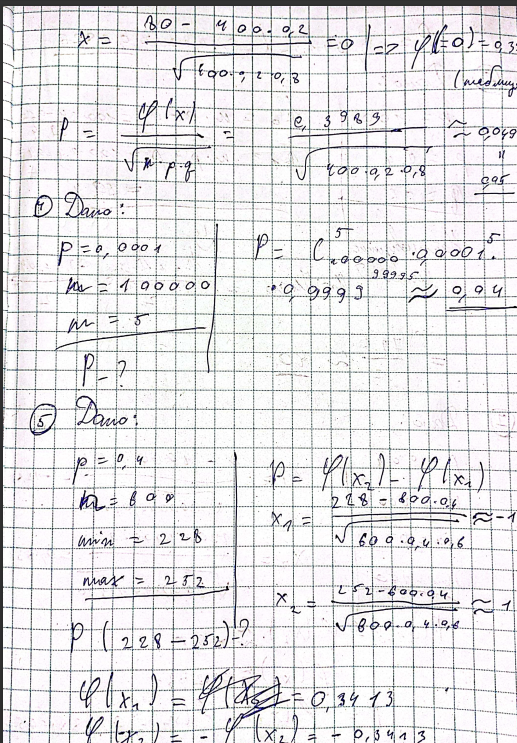 x = (80 - 400·0,2) / √(400·0,2·0,8) = 0 | => φ(=0) = 0,3
(таблиц
P = φ(x) / √(n·p·q) = 0,3989 / √(400·0,2·0,8) ≈ 0,049
"
0,05
④ Дано:
p = 0,0001
n = 100000
m = 5
P - ?
P = C⁵₁₀₀₀₀₀ · 0,0001⁵ ·
· 0,9999⁹⁹⁹⁹⁵ ≈ 0,04
⑤ Дано:
p = 0,4
n = 600
min = 228
max = 252
P (228 - 252) - ?
P = φ(x₂) - φ(x₁)
x₁ = (228 - 600·0,4) / √(600·0,4·0,6) ≈ -1
x₂ = (252 - 600·0,4) / √(600·0,4·0,6) ≈ 1
φ(x₁) = = 0,3413
φ(-x₂) = - φ(x₂) = - 0,3413